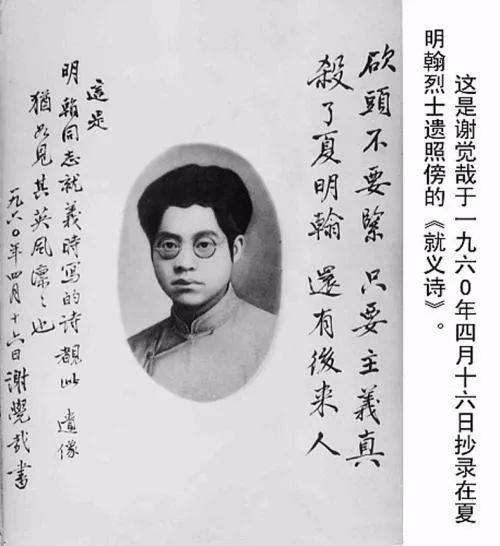 这是谢觉哉于一九六0年四月十六日抄录在夏
明翰烈士遗照傍的《就义诗》。
砍頭不要緊 只要主義真
殺了夏明翰 還有後来人
這是
明翰同志就義時寫的诗 覩此 遺像
猶如見其英風凛々也
一九六0年四月十六日 謝覺哉書